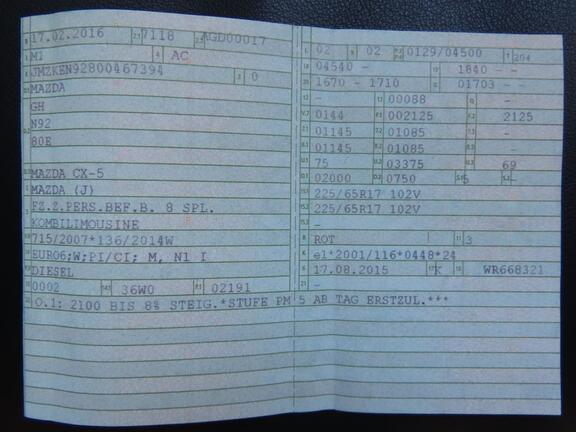 17.02.2016 7118 AGD00017
M1 AC
JMZKEN92800467394 0
MAZDA
GH
N92
80E
MAZDA CX-5
MAZDA (J)
FZ.Z.PERS.BEF.B. 8 SPL.
KOMBILIMOUSINE
715/2007*136/2014W
EURO6;W;PI/CI; M, N1 I
DIESEL
0002 36W0 02191
02 02 0129/04500 204
04540 - 1840 -
1670 - 1710 01703 -
- 00088 -
0144 002125 2125
01145 01085 -
01145 01085 -
75 03375 69
02000 0750 5 -
225/65R17 102V
225/65R17 102V
-
ROT 3
e1*2001/116*0448*24
17.08.2015 K WR668321
-
O.1: 2100 BIS 8% STEIG.*STUFE PM 5 AB TAG ERSTZUL.***